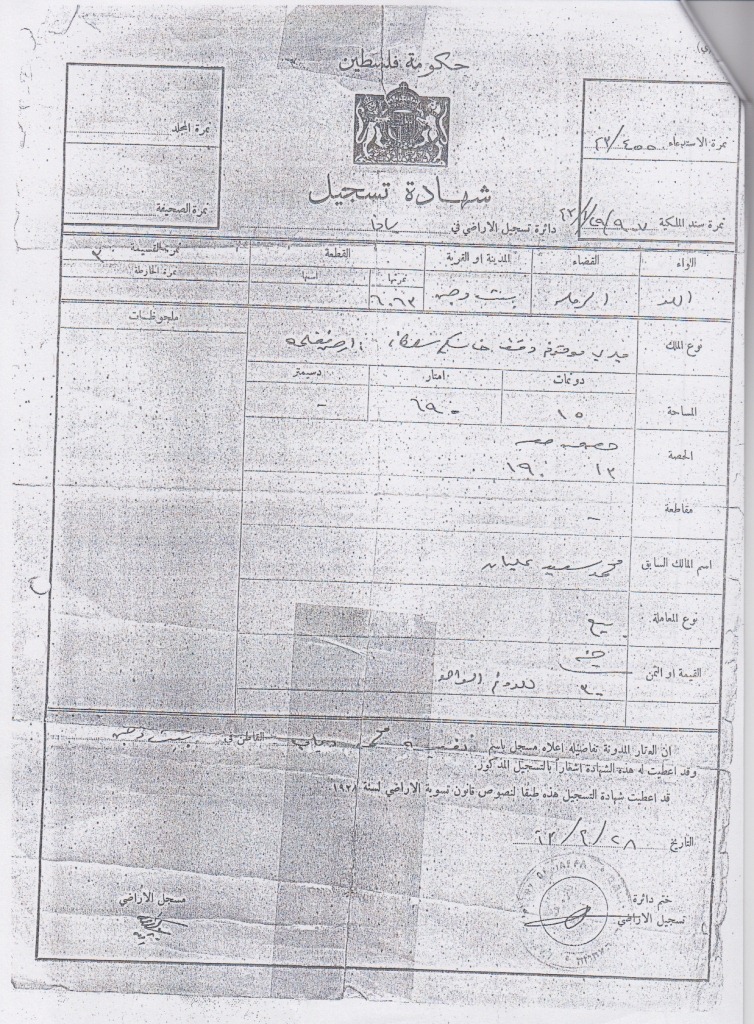 حكومة فلسطين
نمرة المجلد
نمرة الصحيفة
نمرة الاستدعاء ٤٥٥/٤٣
نمرة سند الملكية
شهادة تسجيل
دائرة تسجيل الاراضي في يافا
اللواء القضاء المدينة او القرية القطعة نمرة القسيمة ٣
نمرتها اسمها نمرة الخارطة
اللد الرمله بيت دجن ٦٠٦٣
ملحوظات
نوع الملك
دونمات امتار دسيمتر
المساحة ١٥ ٦٩٠ -
الحصة
١٢ ١٩٠
مقاطعة -
اسم المالك السابق محمد سعيد عليان
نوع المعاملة بيع
القيمة او الثمن
٣٠ للدونم الواحد
ان العقار المدونة تفاصيله اعلاه مسجل باسم محمد القاطن في بيت دجن
وقد اعطيت له هذه الشهادة اشعاراً بالتسجيل المذكور.
قد اعطيت شهادة التسجيل هذه طبقا لنصوص قانون تسوية الاراضي لسنة ١٩٢٨
التاريخ
ختم دائرة
تسجيل الاراضي
مسجل الأراضي
JAFFA